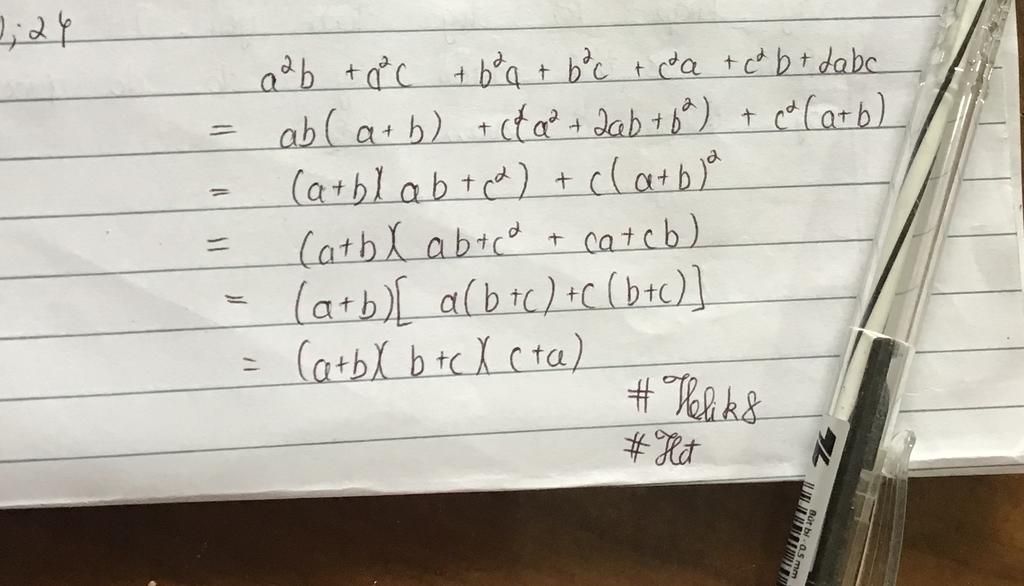 ); 24
a²b + a²c + b²a + b²c + c²a + c²b + 2abc
= ab( a + b) + c(a² + 2ab + b²) + c²(a+b)
= (a+b)(ab + c²) + c(a+b)²
= (a+b)( ab+c² + ca+cb)
= (a+b)[ a(b+c) +c (b+c)]
= (a+b)( b+c)( c+a)
# Heliks
# Ht
TL
Bút bi - 0.5 mm